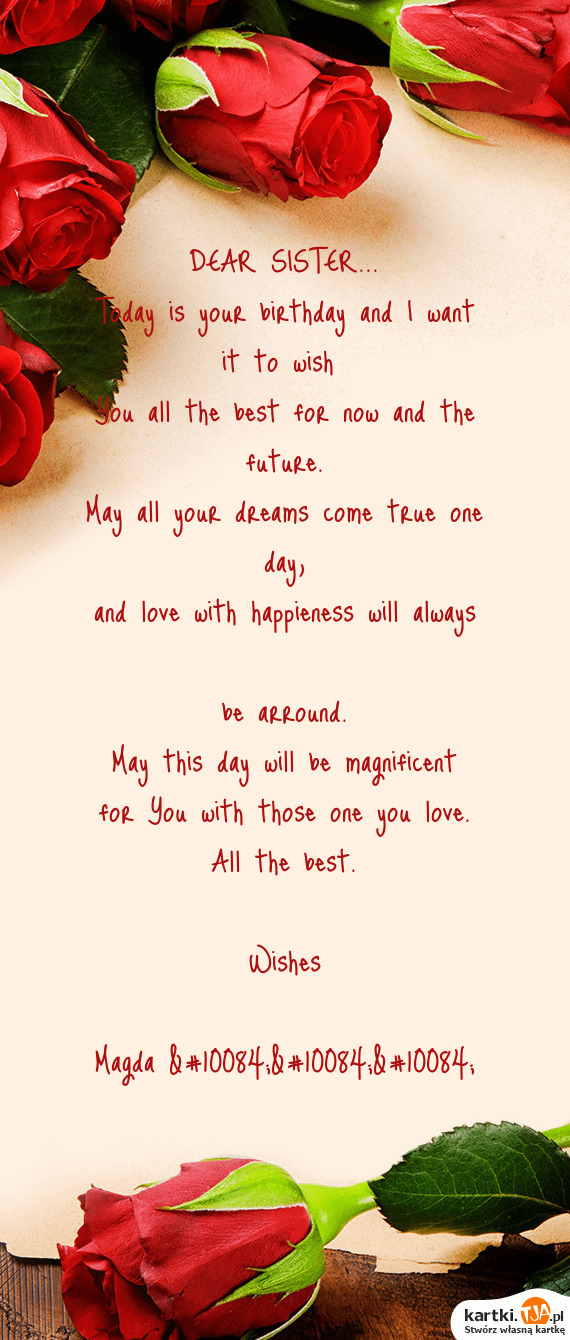 DEAR SISTER...
Today is your birthday and I want
it to wish
You all the best for now and the
future.
May all your dreams come true one
day,
and love with happieness will always
be arround.
May this day will be magnificent
for You with those one you love.
All the best.
Wishes
Magda &#10084;&#10084;&#10084;
kartki.TJA.pl
Stwórz własną kartkę